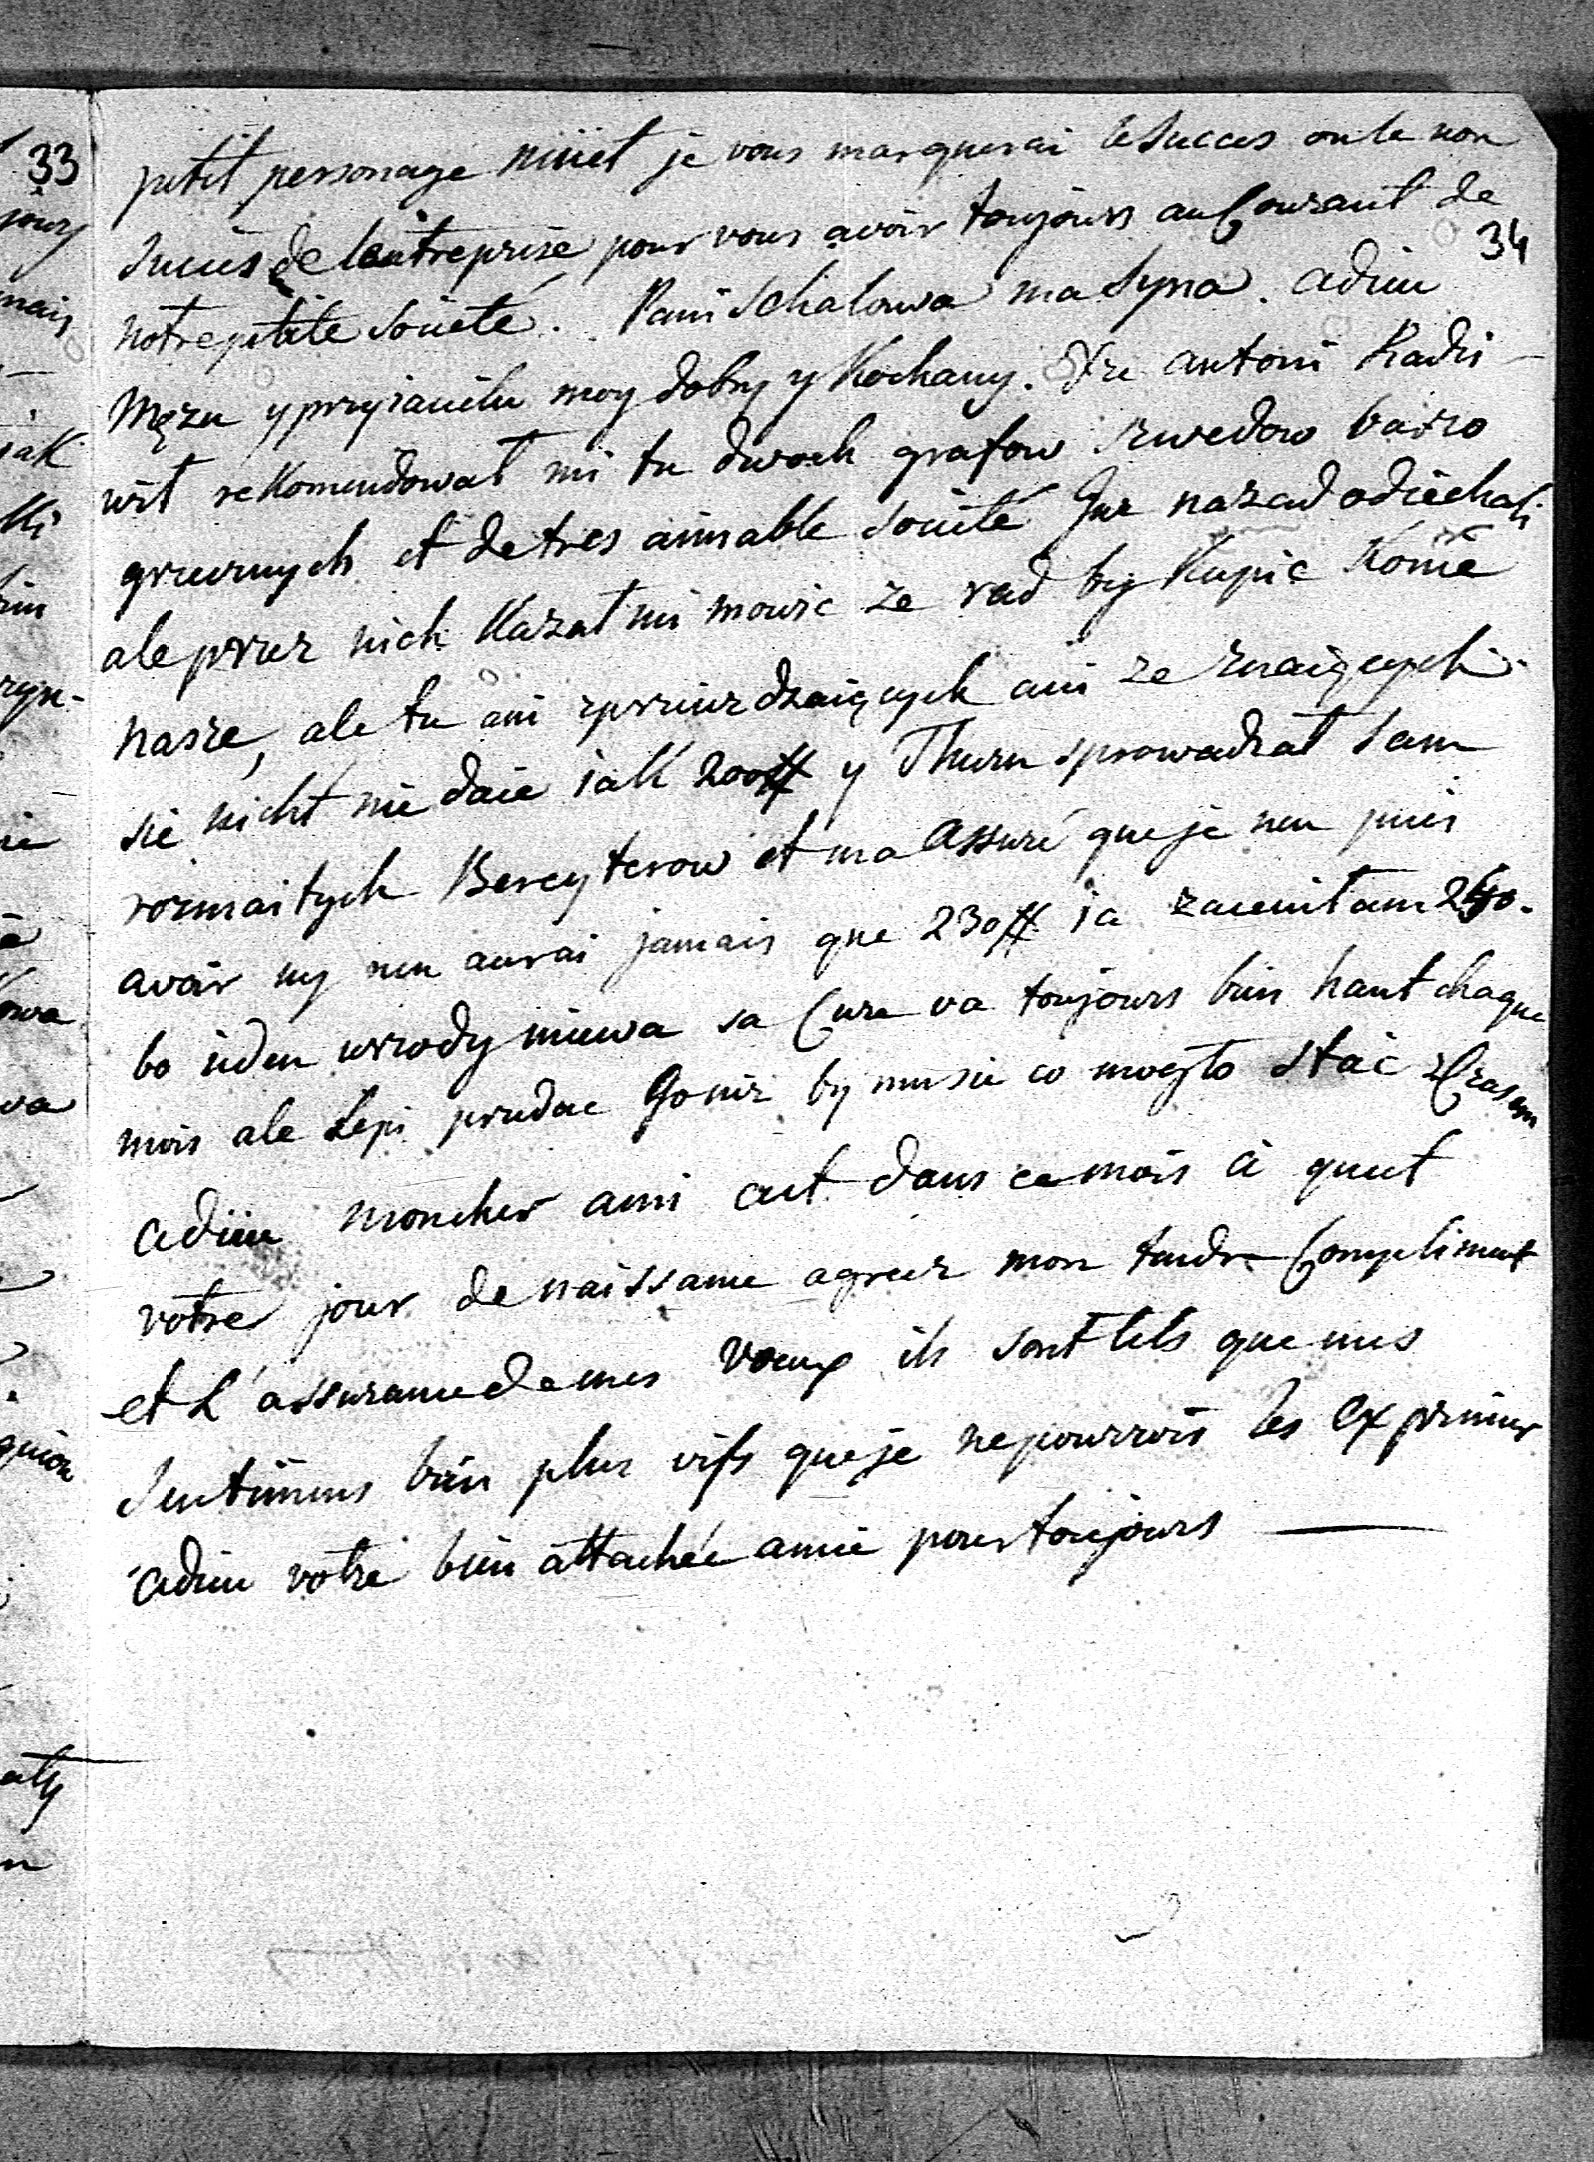 33
34
petit personage niiiet je vous marquerai le succes ou le non
succès de lentreprise pour vous avoir toujours au Courant de
notre petite societé. Pani Schalowa ma syna. adieu
Mężu y przyiacielu moy dobry y Kochany. Xże antoni Radzi
wił rekomendował mi tu dwoch grafow szwedow barzo
grzecznych et de tres aimable societé Juz nazad odiechali
ale przez nich Kazał mi mowic ze rad by Kupic Konie
nasze, ale tu ani zprzeiezdzaiących ani ze znaiących
sie nicht nie daie iak 200# y Thurn sprowadzał sam
rozmaitych Bereyterow et ma assuré que je nen puis
avoir ny nen aurai jamais que 230# ia zaceniłam 250.
bo ieden wrzody miewa sa Cure va toujours bien haut chaque
mois ale Lepi przedac Go niz by mu sie co mogło stac z Czasem
adieu mon cher ami cet dans ce mois ci quest
votre jour de naissance agreez mon tendre Compliment
et L'assurance de mes voeux ils sont tels que mes
sentimens bien plus vifs que je ne pourrois les exprimer
adieu votre bien attachée amie pour toujours —